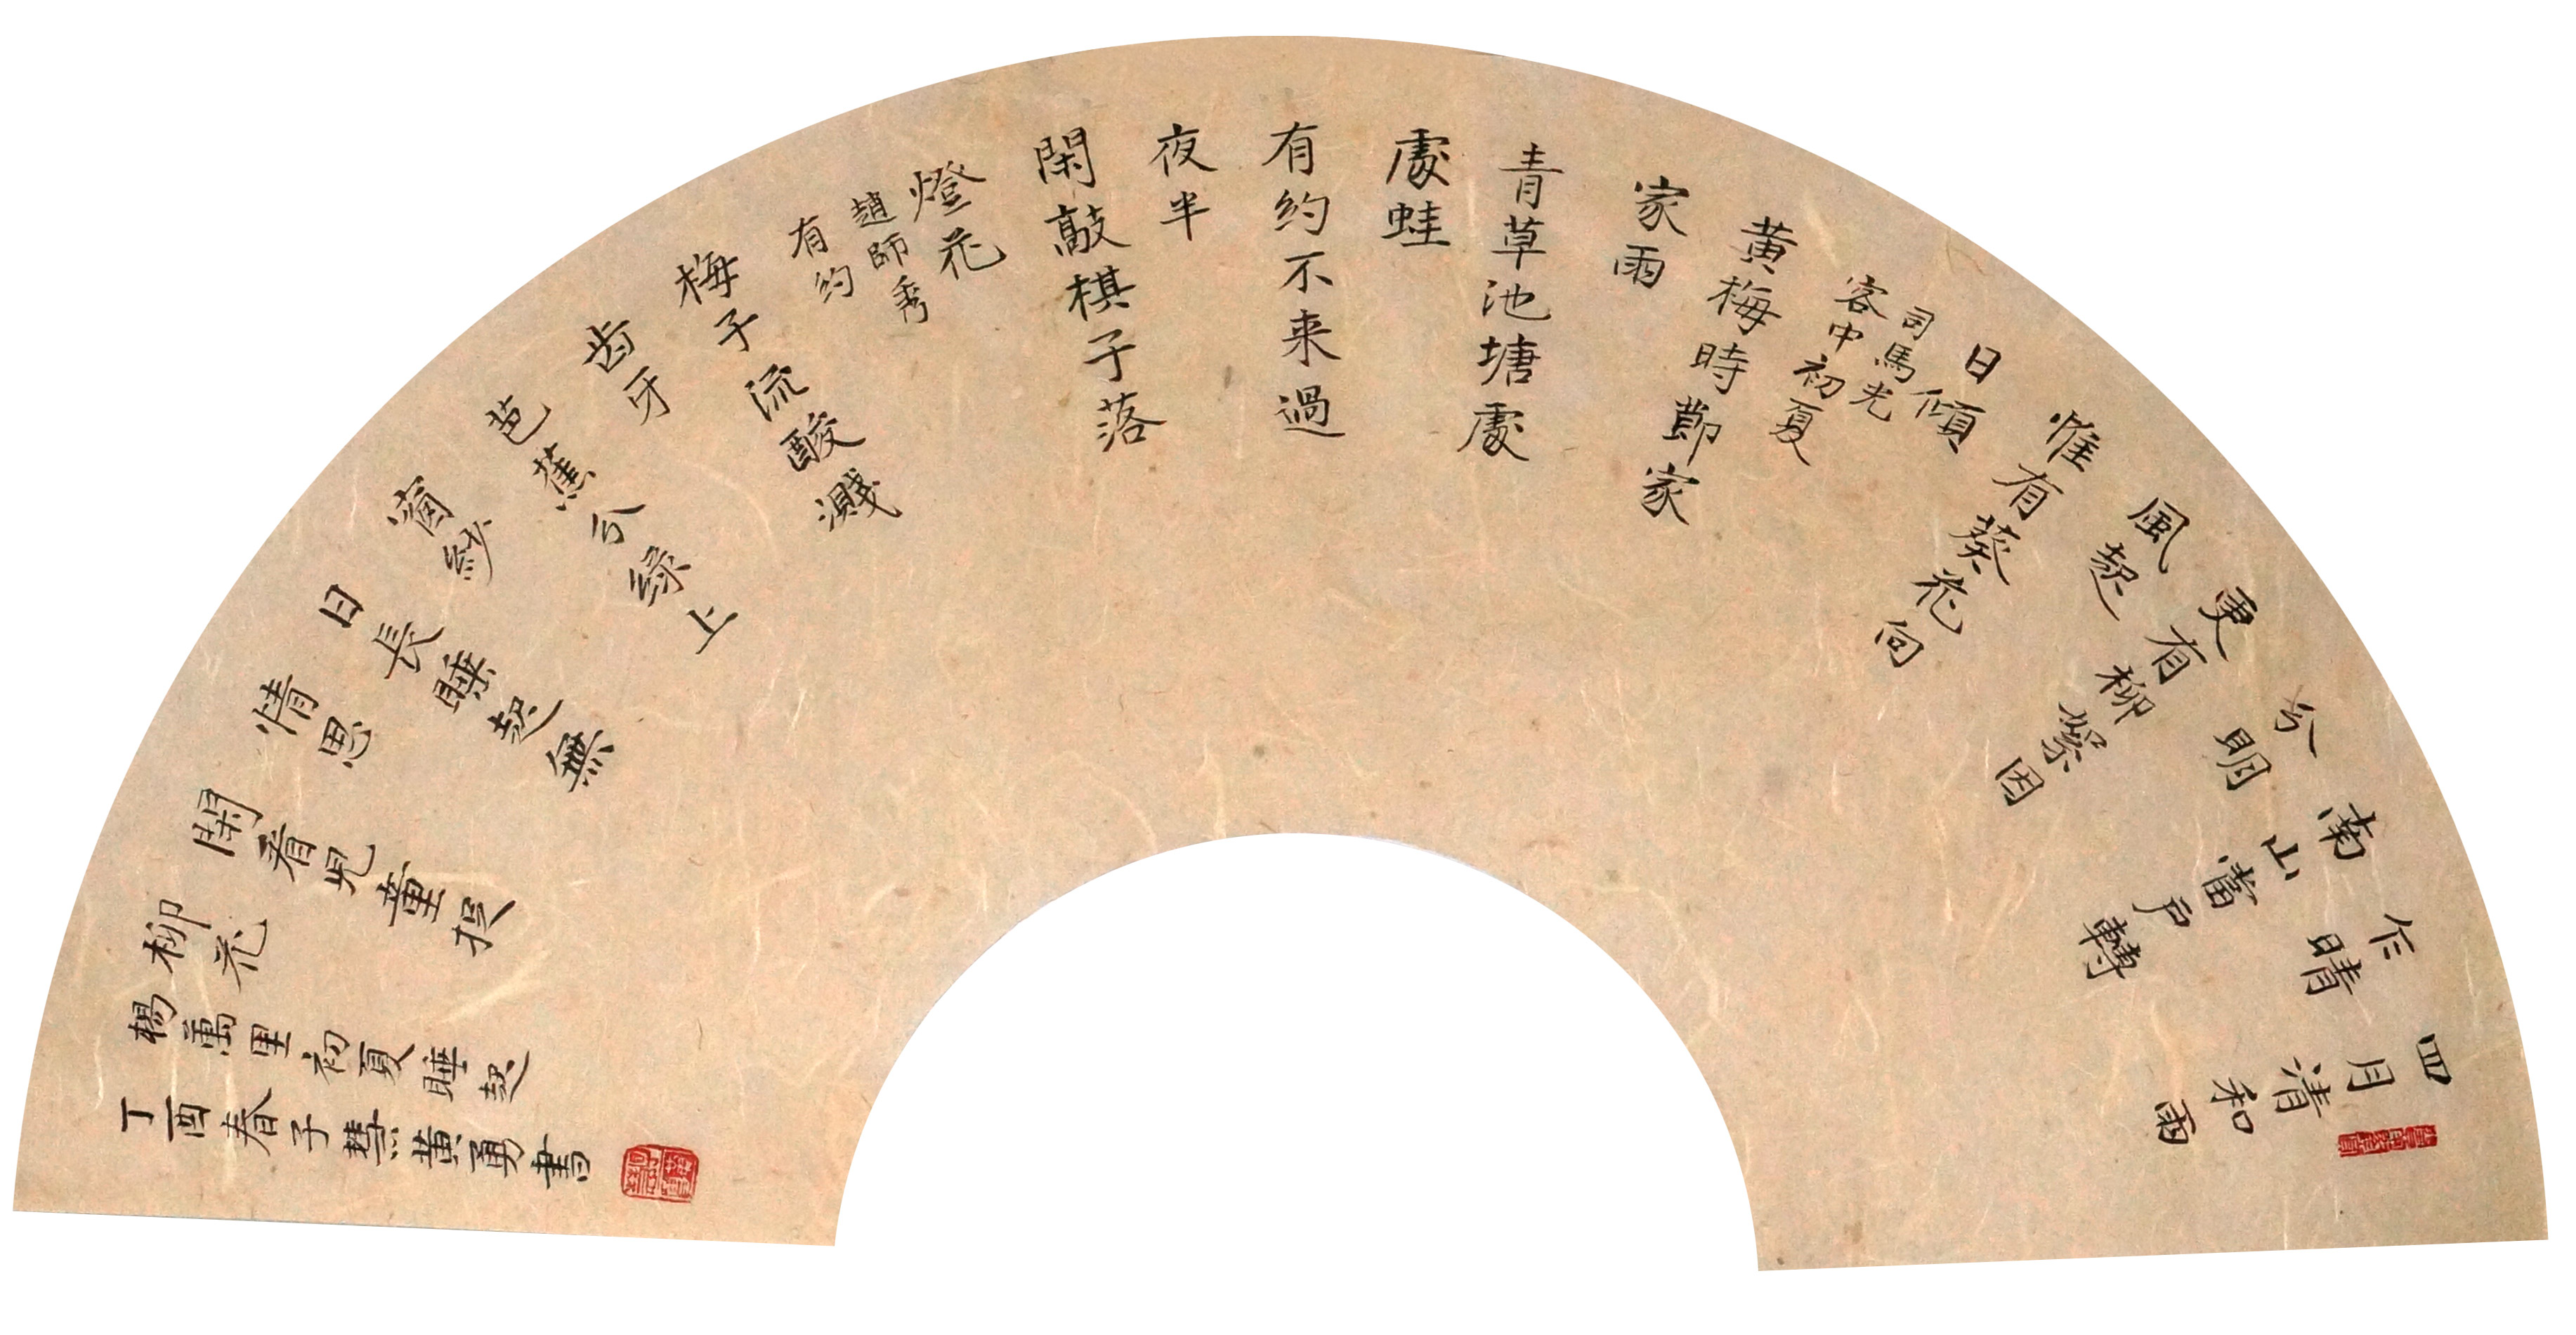 四月清和雨
乍晴
南山當戶轉
分明
更有柳絮因
風起
惟有葵花向
日傾
司馬光
客中初夏
黄梅時節家
家雨
青草池塘處
處蛙
有約不来過
夜半
閑敲棋子落
燈花
趙師秀
有約
梅子流酸濺
齿牙
芭蕉分緑上
窗紗
日長睡起無
情思
閑看兒童捉
柳花
楊萬里初夏睡起
丁酉春子慧黄勇書